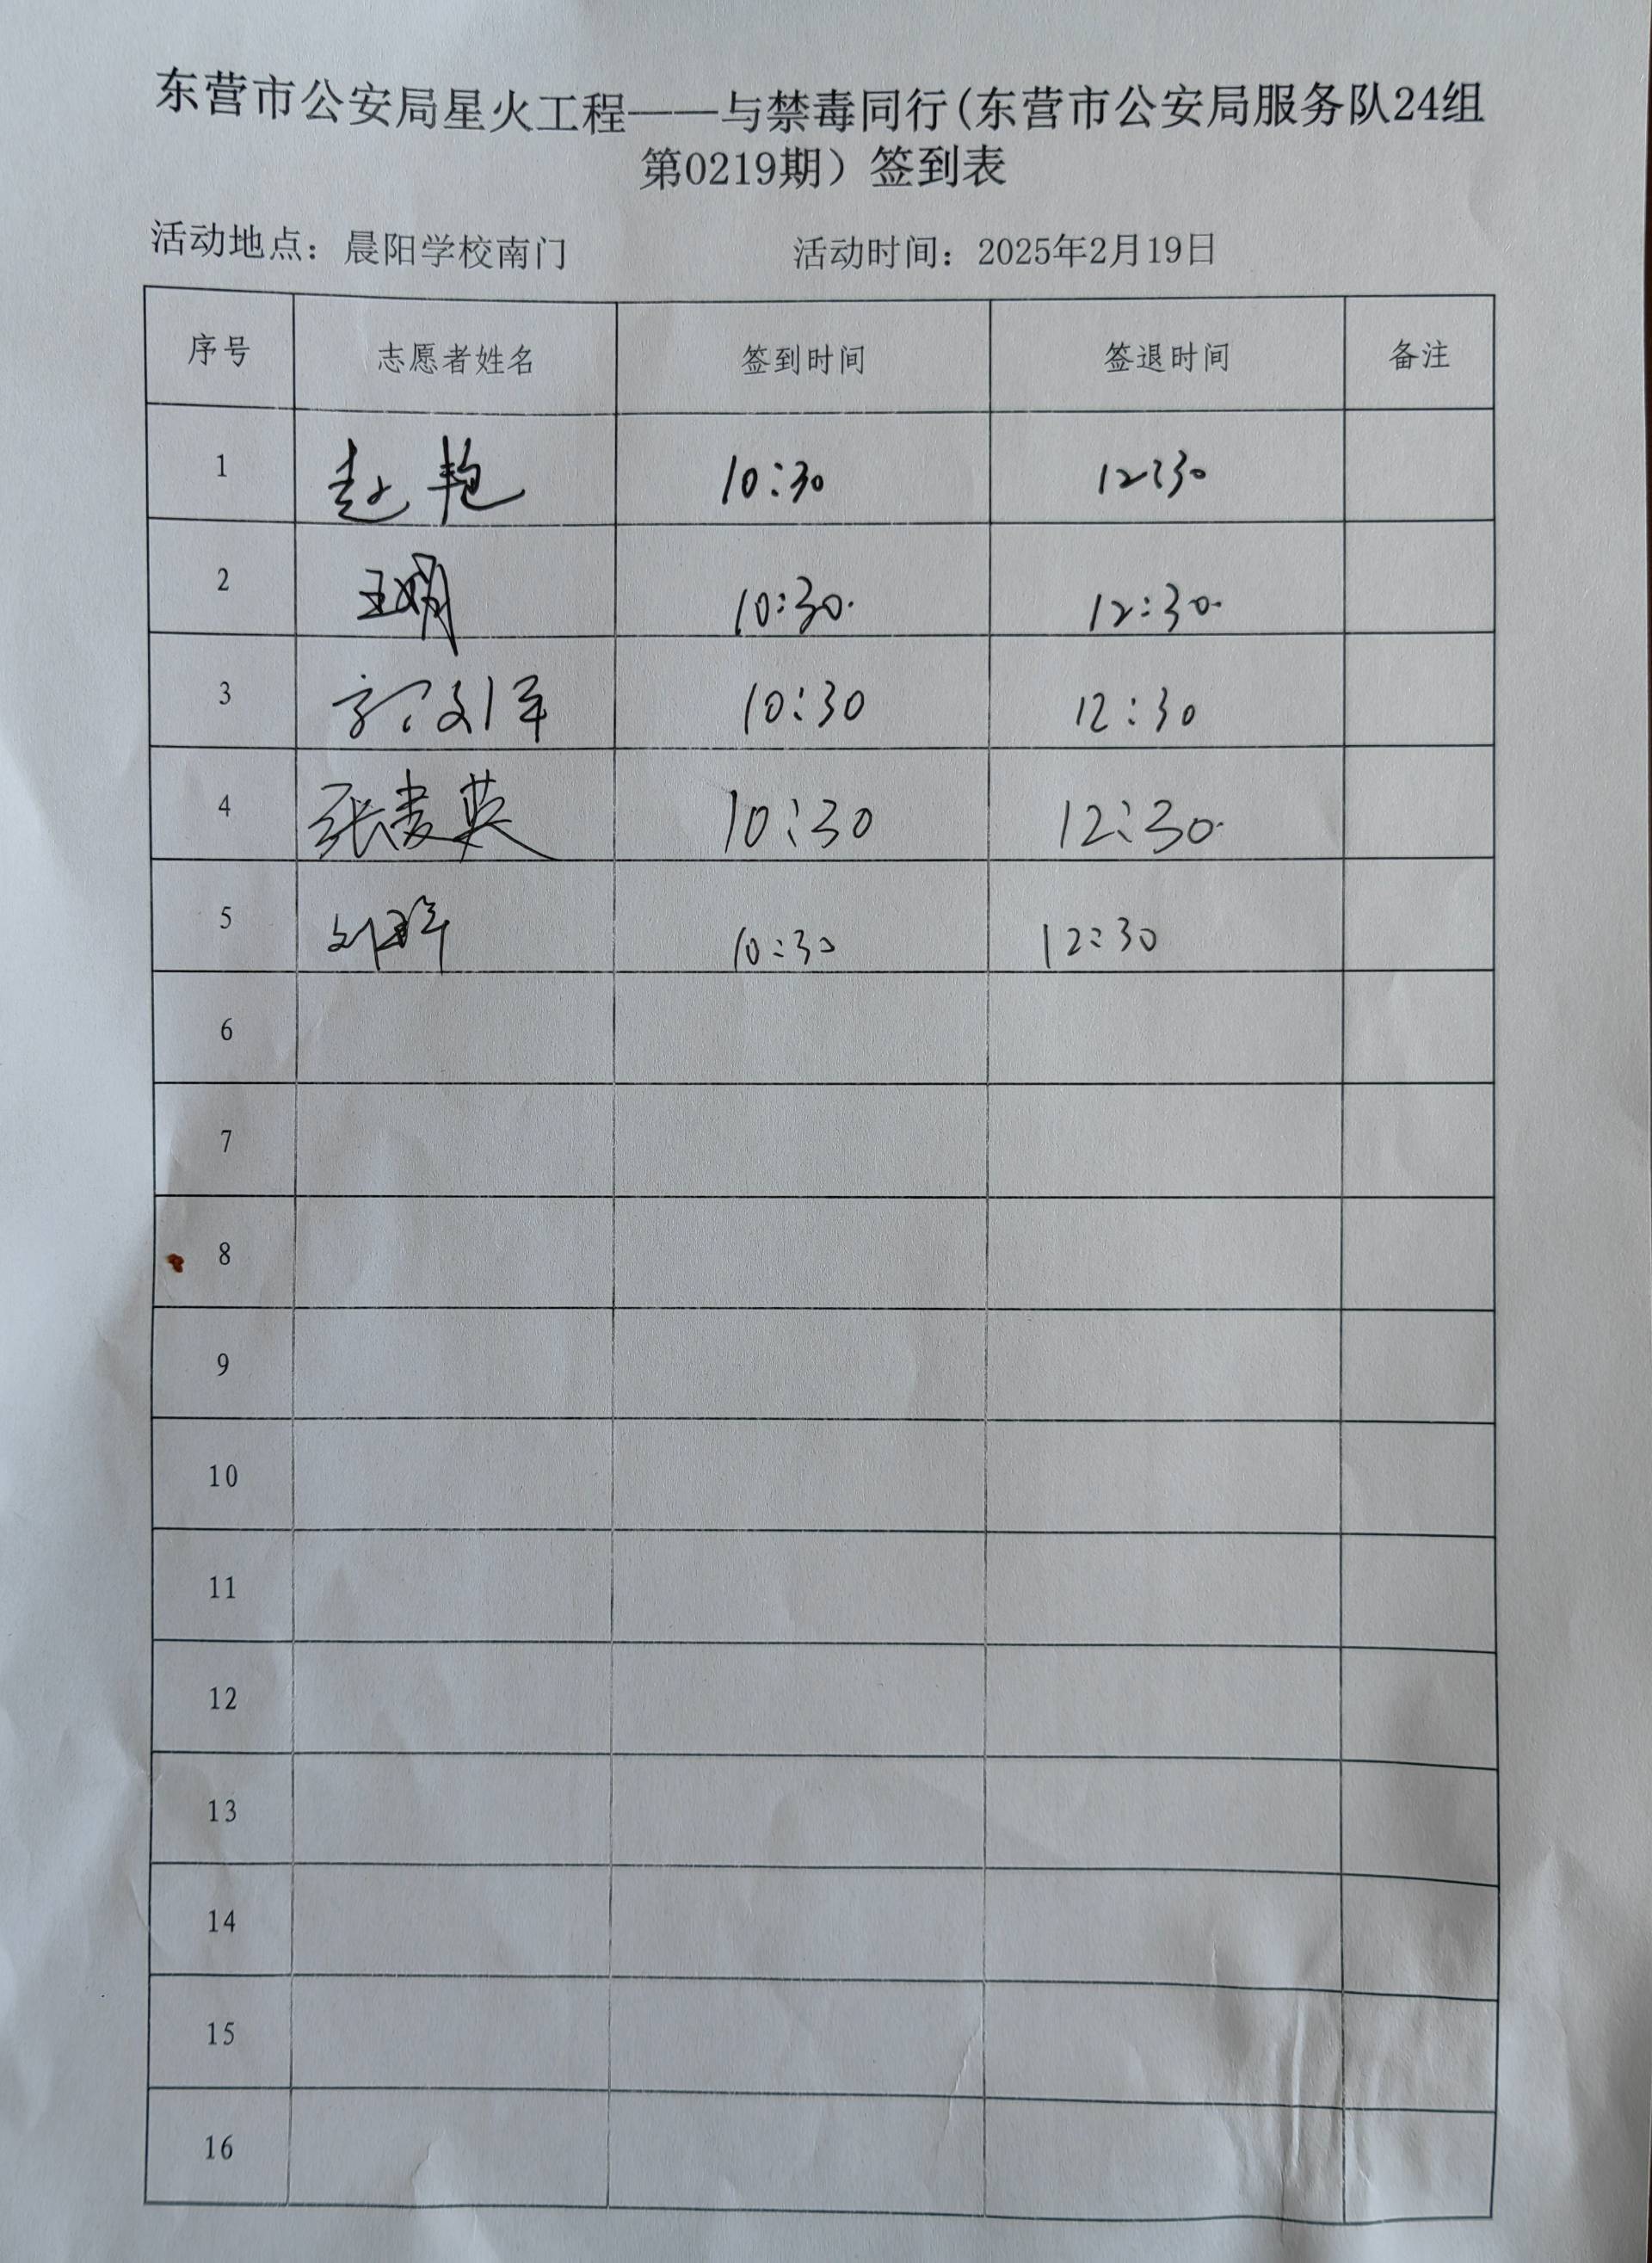 东营市公安局星火工程——与禁毒同行(东营市公安局服务队24组
第0219期）签到表
活动地点：晨阳学校南门 活动时间：2025年2月19日
序号 志愿者姓名 签到时间 签退时间 备注
1 赵艳 10:30 12:30
2 王娟 10:30 12:30
3 10:30 12:30
4 张麦英 10:30 12:30
5 10:30 12:30
6
7
8
9
10
11
12
13
14
15
16